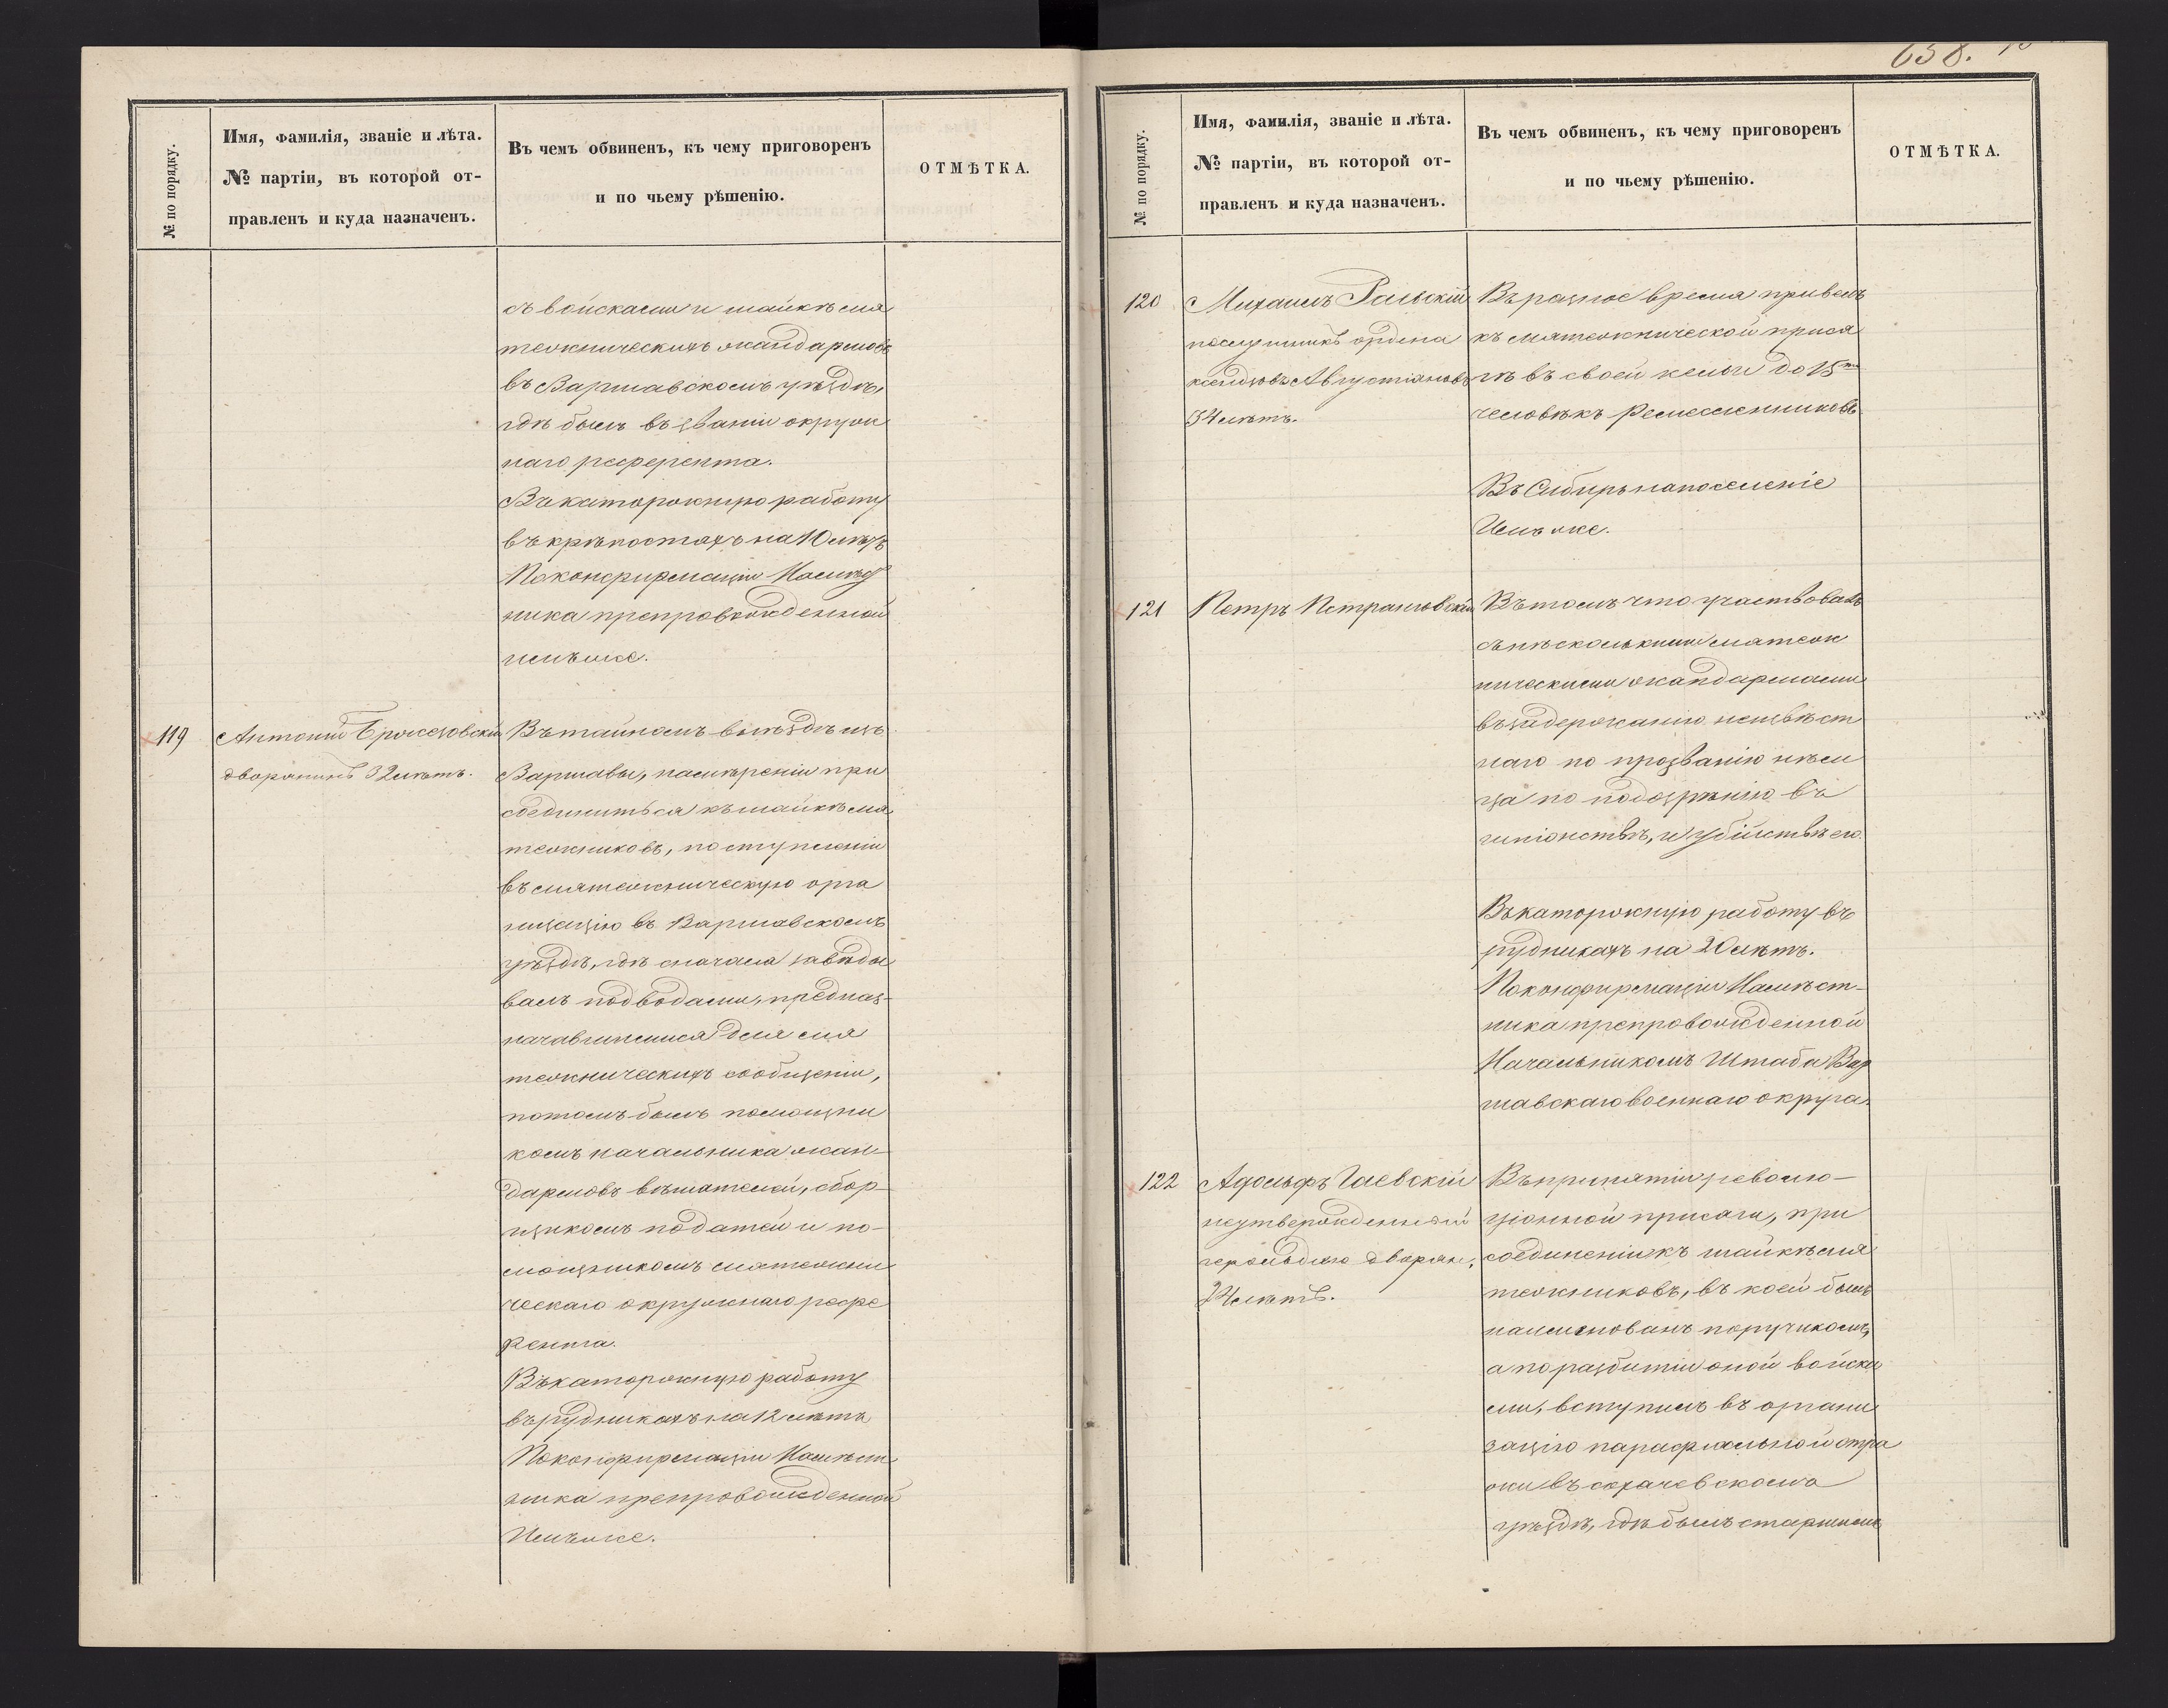 638.
№ по порядку.
Имя, фамилія, званіе и лѣта.
№ партіи, въ которой от-
правленъ и куда назначенъ.
Въ чемъ обвиненъ, къ чему приговоренъ
и по чьему рѣшенію.
ОТМѢТКА.
съ войсками и шайкѣ мя
тежническихъ жандармовъ
въ Варшавскомъ уѣздѣ,
гдѣ былъ въ званіи окруж
наго референта.
Въ каторожную работу
въ крѣпостяхъ на 10 лѣтъ
По конфирмаціи Намѣст
ника препровожденной
имъ же.
119
Антоній Брожозовскій
дворянинъ 32 лѣтъ.
Въ тайномъ выѣздѣ изъ
Варшавы, намѣреніи при
соединиться къ шайкѣ мя
тежниковъ, поступленіи
въ мятежническую орга
низацію въ Варшавскомъ
уѣздѣ, гдѣ сначала завѣды
валъ подводами, предназ-
начавшимися для мя
тежническихъ сообщеній,
потомъ былъ помощни
комъ начальника жан-
дармовъ вѣшателей, сбор-
щикомъ податей и по-
мощникомъ мятежни
ческаго окружнаго рефе
рента.
Въ каторожную работу
въ рудникахъ на 12 лѣтъ
По конфирмаціи Намѣст
ника препровожденной
Имъ же.
№ по порядку.
Имя, фамилія, званіе и лѣта.
№ партіи, въ которой от-
правленъ и куда назначенъ.
Въ чемъ обвиненъ, къ чему приговоренъ
и по чьему рѣшенію.
ОТМѢТКА.
120
Михаилъ Раевскій
послушникъ ордена
ксендзовъ Августіановъ
34 лѣтъ.
Въ разное время привелъ
къ мятежнической прися
гѣ въ своей кельи до 15ти
человѣкъ ремесленниковъ.
Въ Сибирь на поселеніе
Имъ же.
121
Петръ Петрашовскій
Въ томъ что участвовалъ
съ нѣсколькими мятеж
ническими жандармами
въ задержаніи неизвѣст
наго по прозванію нѣм
ца по подозрѣнію въ
шпіонствѣ, и убійствѣ его.
Въ каторожную работу въ
рудникахъ на 20 лѣтъ.
По конфирмаціи Намѣст-
ника препровожденной
Начальникомъ Штаба Вар
шавскаго военнаго округа.
122
Адольфъ Гаевскій
неутвержденный
герольдіею дворян,
24 лѣтъ.
Въ принятіи револю-
ціонной присяги, при
соединеніи къ шайкѣ мя
тежниковъ, въ коей былъ
наименованъ поручикомъ,
а по разбитіи оной войска
ми, вступилъ въ органи
зацію парафіальной стра
жи въ сохачевскомъ
уѣздѣ, гдѣ былъ старшимъ